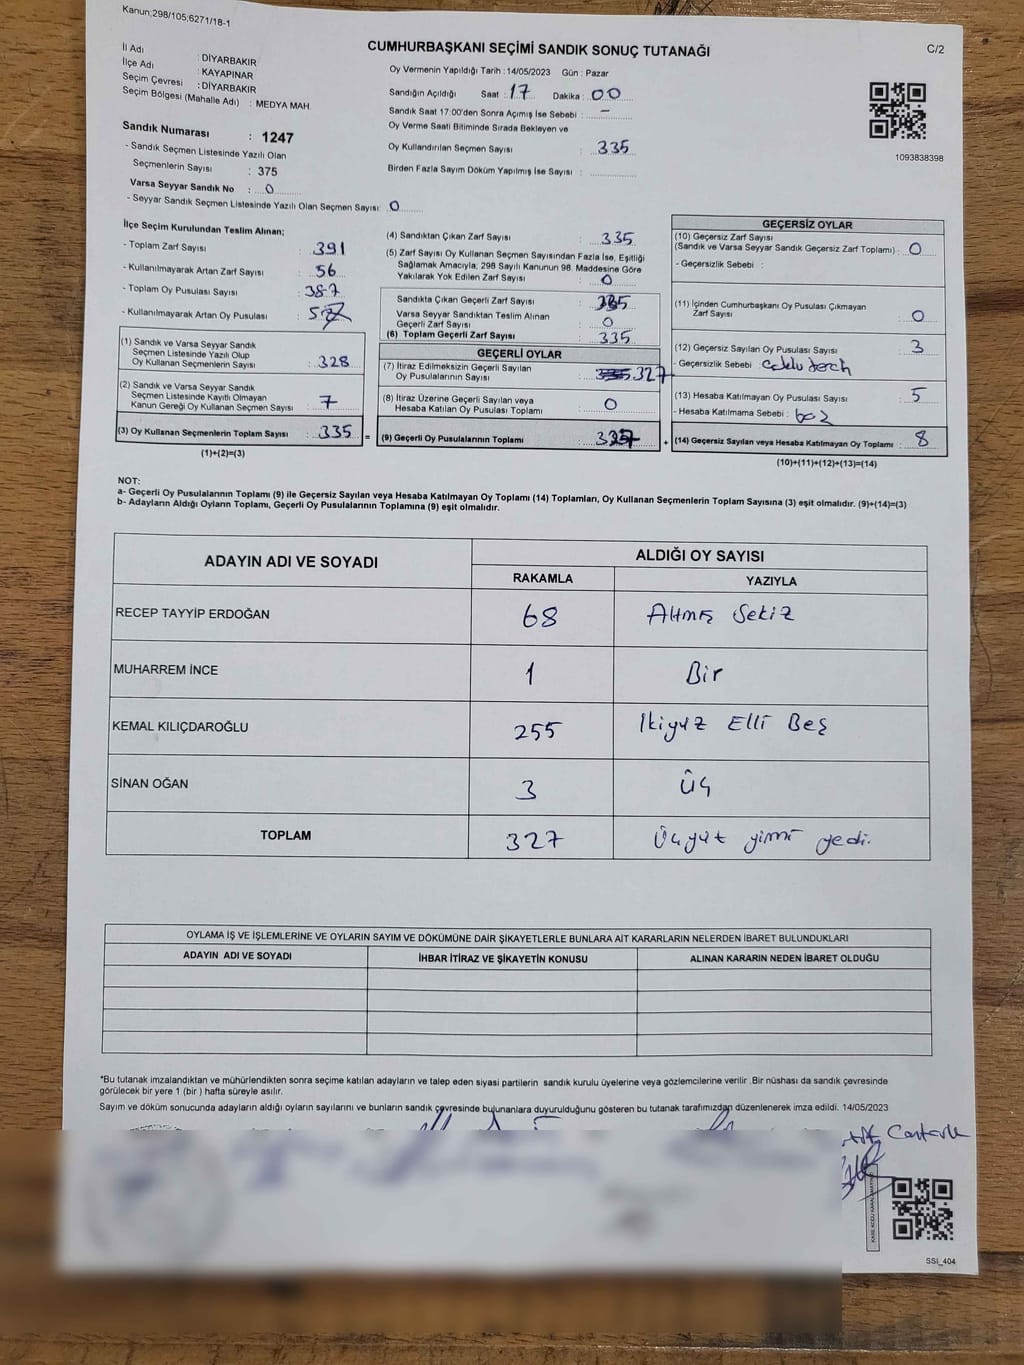 Kanun;298/105;6271/18-1
CUMHURBAŞKANI SEÇİMİ SANDIK SONUÇ TUTANAĞI
C/2
İl Adı : DİYARBAKIR
İlçe Adı : KAYAPINAR
Seçim Çevresi : DİYARBAKIR
Seçim Bölgesi (Mahalle Adı) : MEDYA MAH.
Sandık Numarası : 1247
- Sandık Seçmen Listesinde Yazılı Olan
Seçmenlerin Sayısı : 375
Varsa Seyyar Sandık No : 0
- Seyyar Sandık Seçmen Listesinde Yazılı Olan Seçmen Sayısı: 0
Oy Vermenin Yapıldığı Tarih : 14/05/2023 Gün : Pazar
Sandığın Açıldığı Saat : 17 Dakika : 00
Sandık Saat 17:00'den Sonra Açımış İse Sebebi : -
Oy Verme Saati Bitiminde Sırada Bekleyen ve
Oy Kullandırılan Seçmen Sayısı : 335
Birden Fazla Sayım Döküm Yapılmış İse Sayısı :
1093838398
İlçe Seçim Kurulundan Teslim Alınan;
- Toplam Zarf Sayısı : 391
- Kullanılmayarak Artan Zarf Sayısı : 56
- Toplam Oy Pusulası Sayısı : 387
- Kullanılmayarak Artan Oy Pusulası :
(1) Sandık ve Varsa Seyyar Sandık
Seçmen Listesinde Yazılı Olup
Oy Kullanan Seçmenlerin Sayısı : 328
(2) Sandık ve Varsa Seyyar Sandık
Seçmen Listesinde Kayıtlı Olmayan
Kanun Gereği Oy Kullanan Seçmen Sayısı : 7
(3) Oy Kullanan Seçmenlerin Toplam Sayısı : 335
(1)+(2)=(3)
=
(4) Sandıktan Çıkan Zarf Sayısı : 335
(5) Zarf Sayısı Oy Kullanan Seçmen Sayısından Fazla İse, Eşitliği
Sağlamak Amacıyla, 298 Sayılı Kanunun 98. Maddesine Göre
Yakılarak Yok Edilen Zarf Sayısı : 0
Sandıkta Çıkan Geçerli Zarf Sayısı : 335
Varsa Seyyar Sandıktan Teslim Alınan
Geçerli Zarf Sayısı : 0
(6) Toplam Geçerli Zarf Sayısı : 335
GEÇERLİ OYLAR
(7) İtiraz Edilmeksizin Geçerli Sayılan
Oy Pusulalarının Sayısı : 335 327
(8) İtiraz Üzerine Geçerli Sayılan veya
Hesaba Katılan Oy Pusulası Toplamı : 0
(9) Geçerli Oy Pusulalarının Toplamı : 327
+
GEÇERSİZ OYLAR
(10) Geçersiz Zarf Sayısı
(Sandık ve Varsa Seyyar Sandık Geçersiz Zarf Toplamı) : 0
- Geçersizlik Sebebi :
(11) İçinden Cumhurbaşkanı Oy Pusulası Çıkmayan
Zarf Sayısı : 0
(12) Geçersiz Sayılan Oy Pusulası Sayısı : 3
- Geçersizlik Sebebi :
(13) Hesaba Katılmayan Oy Pusulası Sayısı : 5
- Hesaba Katılmama Sebebi : boz
(14) Geçersiz Sayılan veya Hesaba Katılmayan Oy Toplamı : 8
(10)+(11)+(12)+(13)=(14)
NOT:
a- Geçerli Oy Pusulalarının Toplamı (9) ile Geçersiz Sayılan veya Hesaba Katılmayan Oy Toplamı (14) Toplamları, Oy Kullanan Seçmenlerin Toplam Sayısına (3) eşit olmalıdır. (9)+(14)=(3)
b- Adayların Aldığı Oyların Toplamı, Geçerli Oy Pusulalarının Toplamına (9) eşit olmalıdır.
ADAYIN ADI VE SOYADI ALDIĞI OY SAYISI
RAKAMLA YAZIYLA
RECEP TAYYİP ERDOĞAN 68 Altmış Sekiz
MUHARREM İNCE 1 Bir
KEMAL KILIÇDAROĞLU 255 İkiyüz Elli Beş
SİNAN OĞAN 3 Üç
TOPLAM 327 Üçyüz yirmi yedi.
OYLAMA İŞ VE İŞLEMLERİNE VE OYLARIN SAYIM VE DÖKÜMÜNE DAİR ŞİKAYETLERLE BUNLARA AİT KARARLARIN NELERDEN İBARET BULUNDUKLARI
ADAYIN ADI VE SOYADI İHBAR İTİRAZ VE ŞİKAYETİN KONUSU ALINAN KARARIN NEDEN İBARET OLDUĞU
*Bu tutanak imzalandıktan ve mühürlendikten sonra seçime katılan adayların ve talep eden siyasi partilerin sandık kurulu üyelerine veya gözlemcilerine verilir .Bir nüshası da sandık çevresinde
görülecek bir yere 1 (bir ) hafta süreyle asılır.
Sayım ve döküm sonucunda adayların aldığı oyların sayılarını ve bunların sandık çevresinde bulunanlara duyurulduğunu gösteren bu tutanak tarafımızdan düzenlenerek imza edildi. 14/05/2023
SSI_404